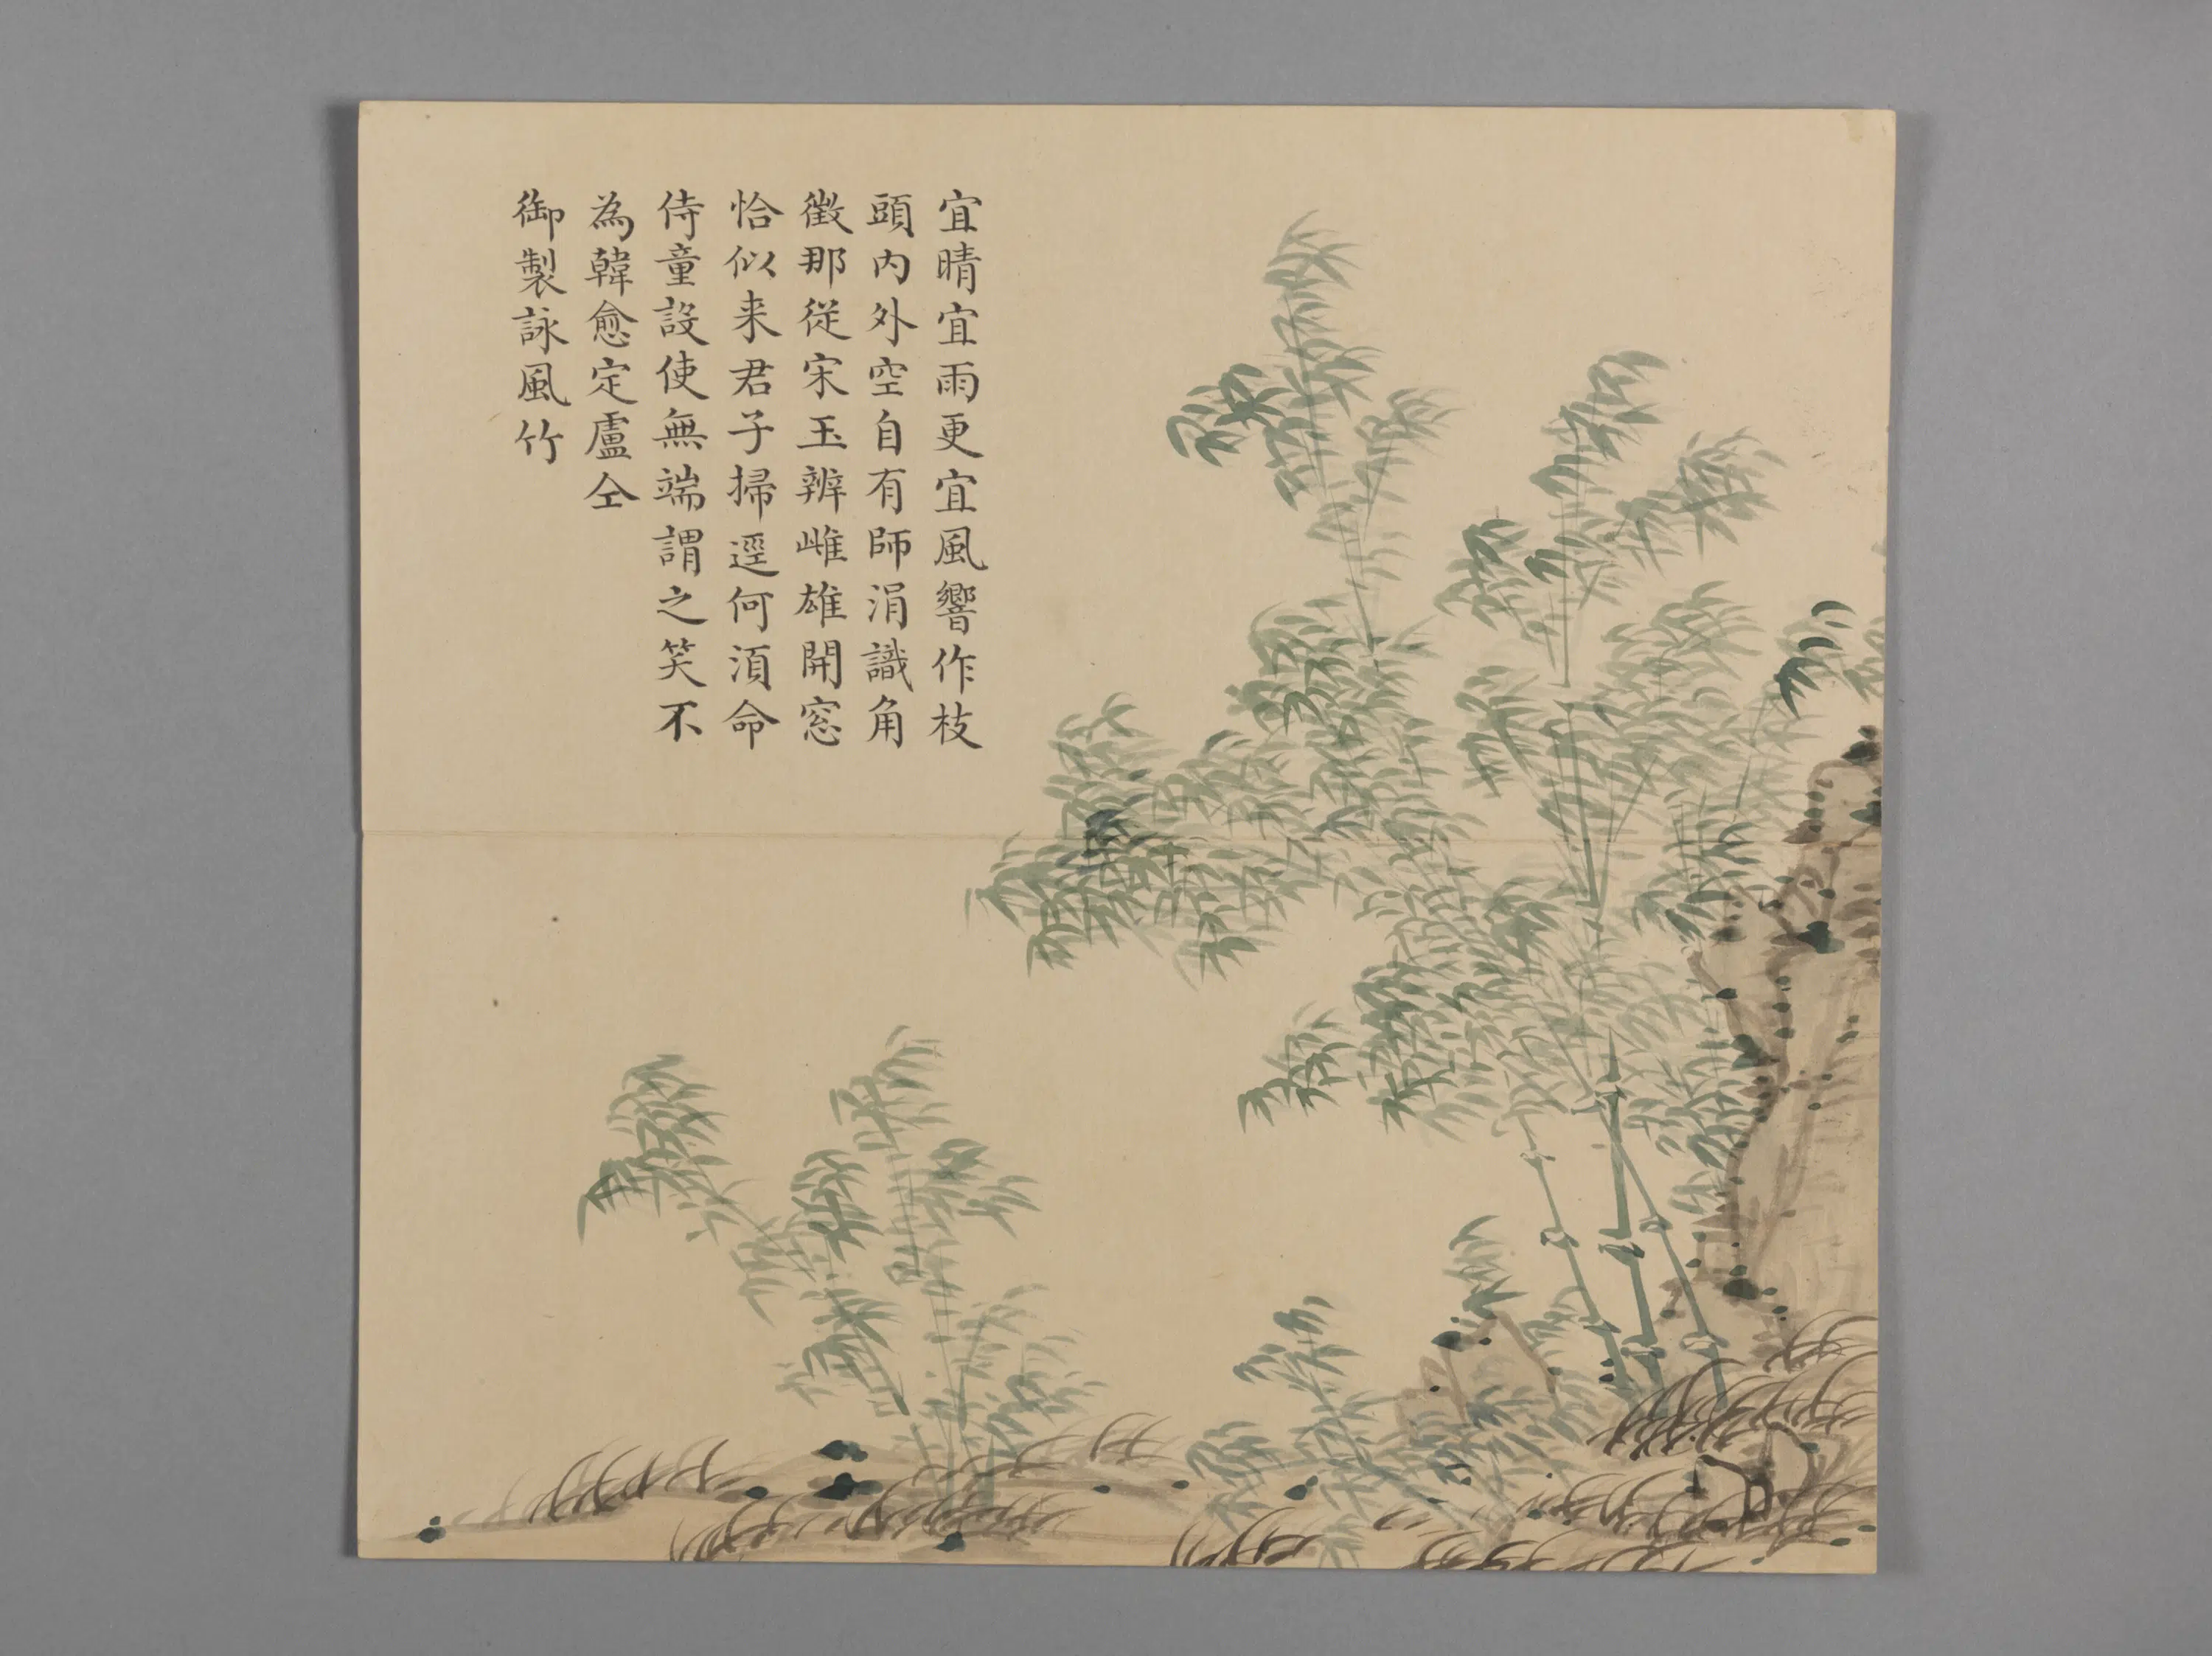 宜晴宜雨更宜風響作枝
頭内外空自有師涓識角
徵那從宋玉辨雌雄開窓
恰似来君子掃逕何湏命
侍童設使無端謂之笑不
為韓愈定盧仝
御製詠風竹